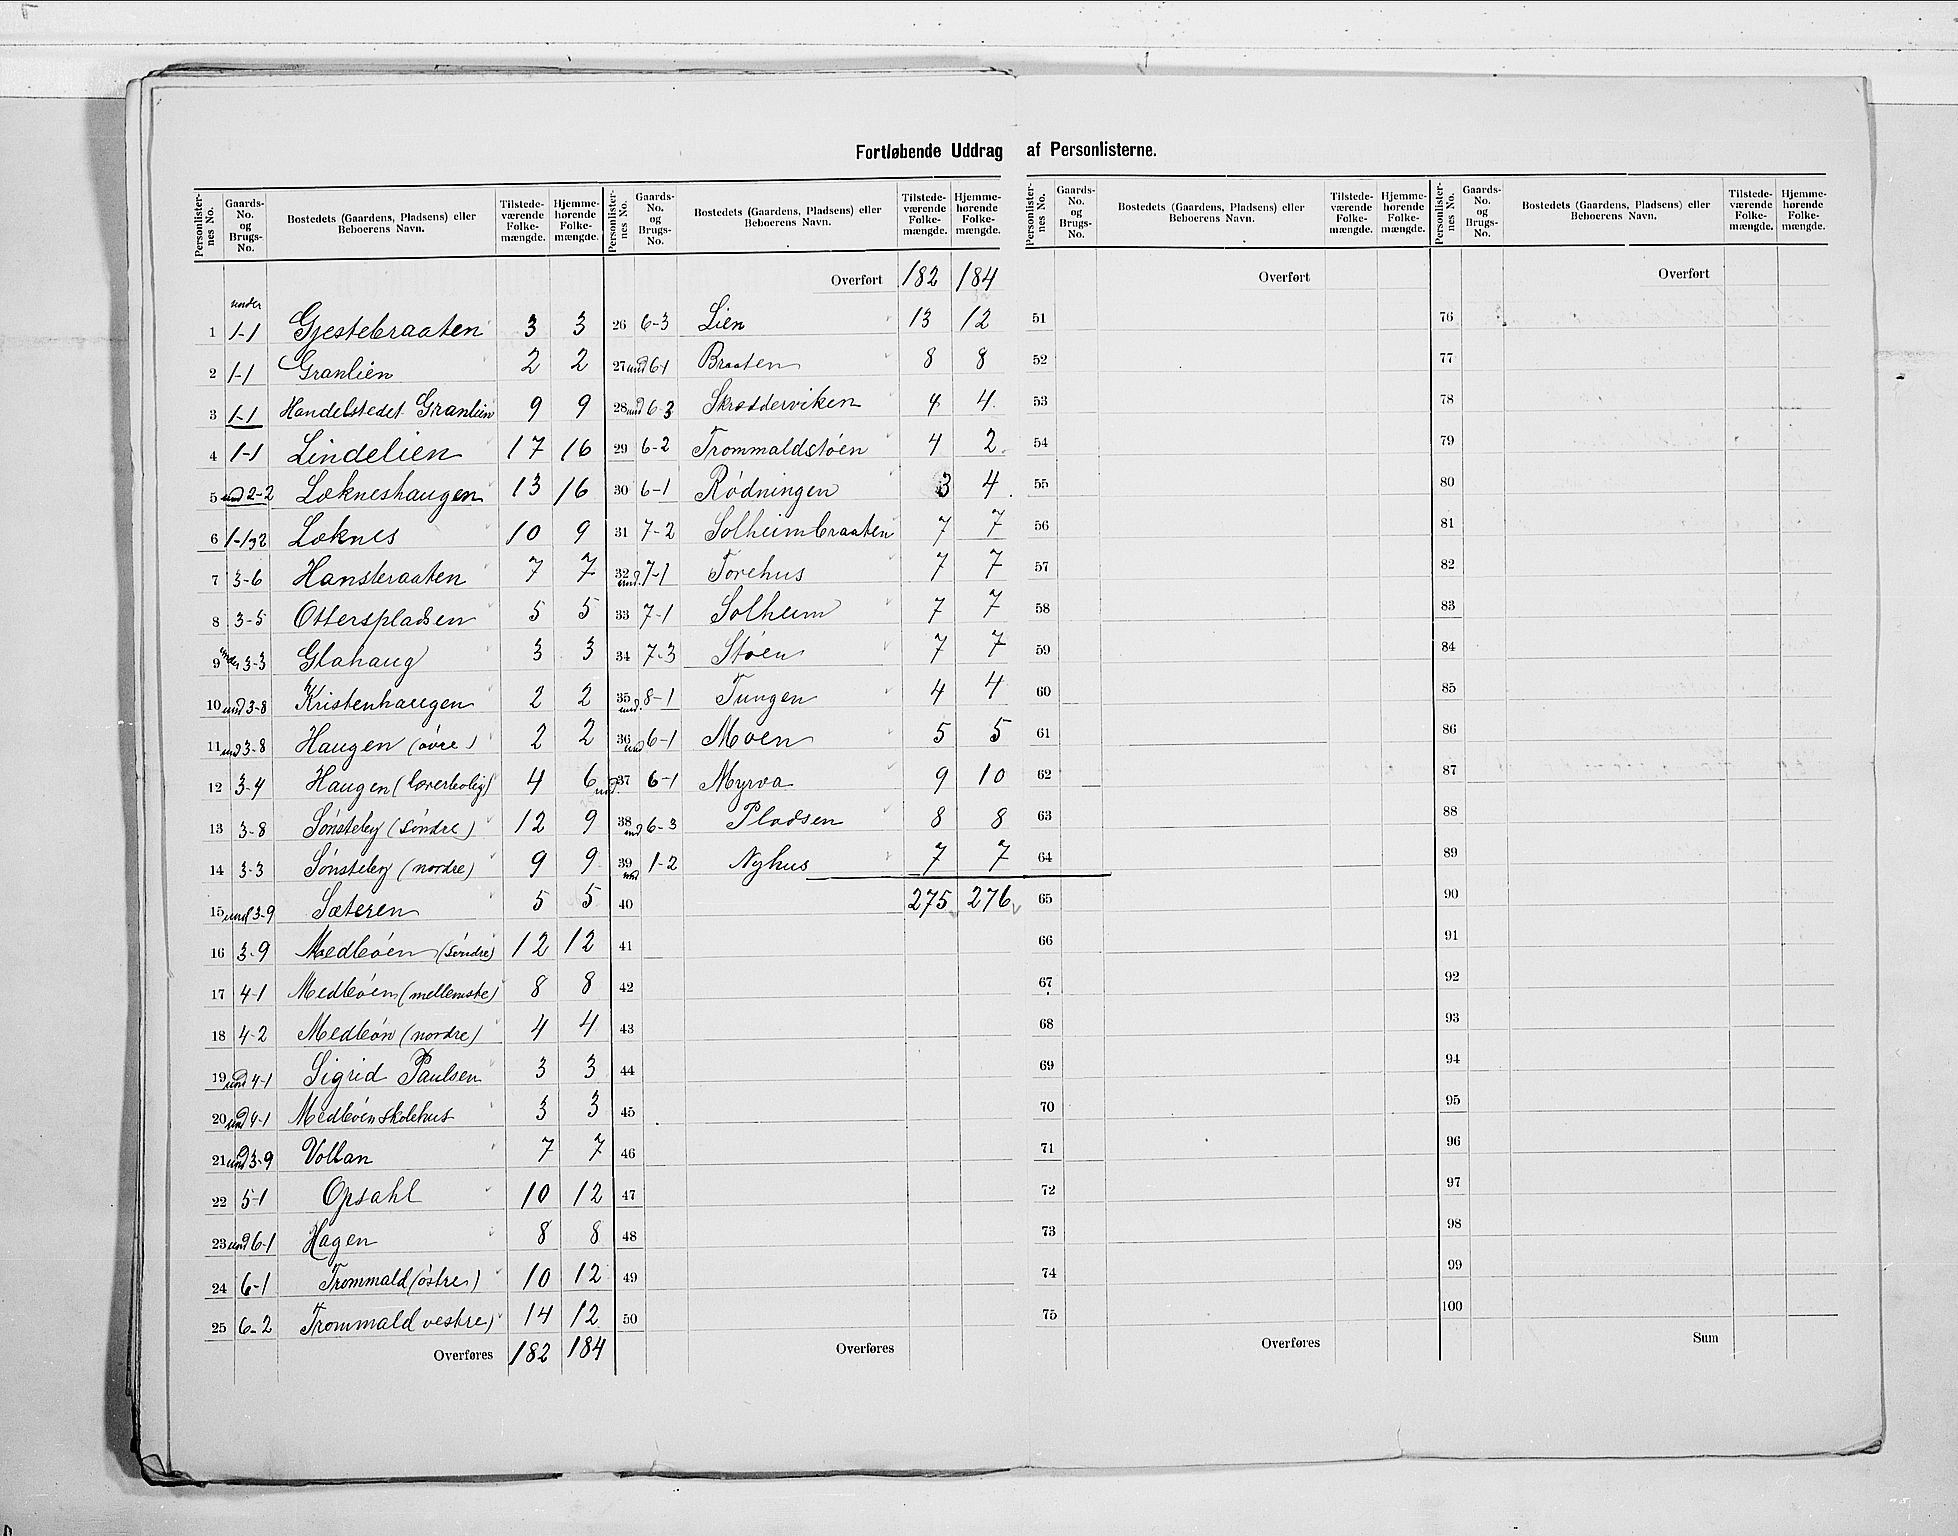 Fortløbende Uddrag af Personlisterne.
Personlisternes No. Gaards-No. og Brugs-No. Bostedets (Gaardens, Pladsens) eller Beboerens Navn. Tilstedeværende Folkemængde. Hjemmehørende Folkemængde.
under
1 1-1 Gjestebraaten 3 3
2 1-1 Granlien 2 2
3 1-1 Handelstedet Granlien 9 9
4 1-1 Lindelien 17 16
5 und 2-2 Lökneshaugen 13 16
6 1-1,2 Løknes 10 9
7 3-6 Hansbraaten 7 7
8 3-5 Otterspladsen 5 5
9 under 3-3 Glahaug 3 3
10 und 3-8 Kristenhaugen 2 2
11 und 3-8 Haugen (övre) 2 2
12 3-4 Haugen (lærerbolig) 4 6
13 3-8 Sönsteby (söndre) 12 9
14 3-3 Sönsteby (nordre) 9 9
15 und 3-9 Sæteren 5 5
16 3-9 Medböen (söndre) 12 12
17 4-1 Medböen (mellemste) 8 8
18 4-2 Medbön (nordre) 4 4
19 und 4-1 Sigrid Paulsen 3 3
20 und 4-1 Medböen skolehus 3 3
21 und 3-9 Vollan 7 7
22 5-1 Opsahl 10 12
23 und 6-1 Hagen 8 8
24 6-1 Trommald (östre) 10 12
25 6-2 Trommald vestre) 14 12
Overføres 182 184
Personlisternes No. Gaards-No. og Brugs-No. Bostedets (Gaardens, Pladsens) eller Beboerens Navn. Tilstedeværende Folkemængde. Hjemmehørende Folkemængde.
Overført 182 184
26 6-3 Lien 13 12
27 und 6-1 Braaten 8 8
28 und 6-3 Skrædderviken 4 4
29 6-2 Trommaldstöen 4 2
30 6-1 Rödningen 3 4
31 7-2 Solheimbraaten 7 7
32 und. 7-1 Torehus 7 7
33 7-1 Solheim 7 7
34 7-3 Stöen 7 7
35 und. 8-1 Tungen 4 4
36 und 6-1 Moen 5 5
37 und. 6-1 Myrva 9 10
38 und 6-3 Pladsen 8 8
39 und 1-2 Nyhus 7 7
40 275 276
41
42
43
44
45
46
47
48
49
50
Overføres
Personlisternes No. Gaards-No. og Brugs-No. Bostedets (Gaardens, Pladsens) eller Beboerens Navn. Tilstedeværende Folkemængde. Hjemmehørende Folkemængde.
Overført
51
52
53
54
55
56
57
58
59
60
61
62
63
64
65
66
67
68
69
70
71
72
73
74
75
Overføres
Personlisternes No. Gaards-No. og Brugs-No. Bostedets (Gaardens, Pladsens) eller Beboerens Navn. Tilstedeværende Folkemængde. Hjemmehørende Folkemængde.
Overført
76
77
78
79
80
81
82
83
84
85
86
87
88
89
90
91
92
93
94
95
96
97
98
99
100
Sum